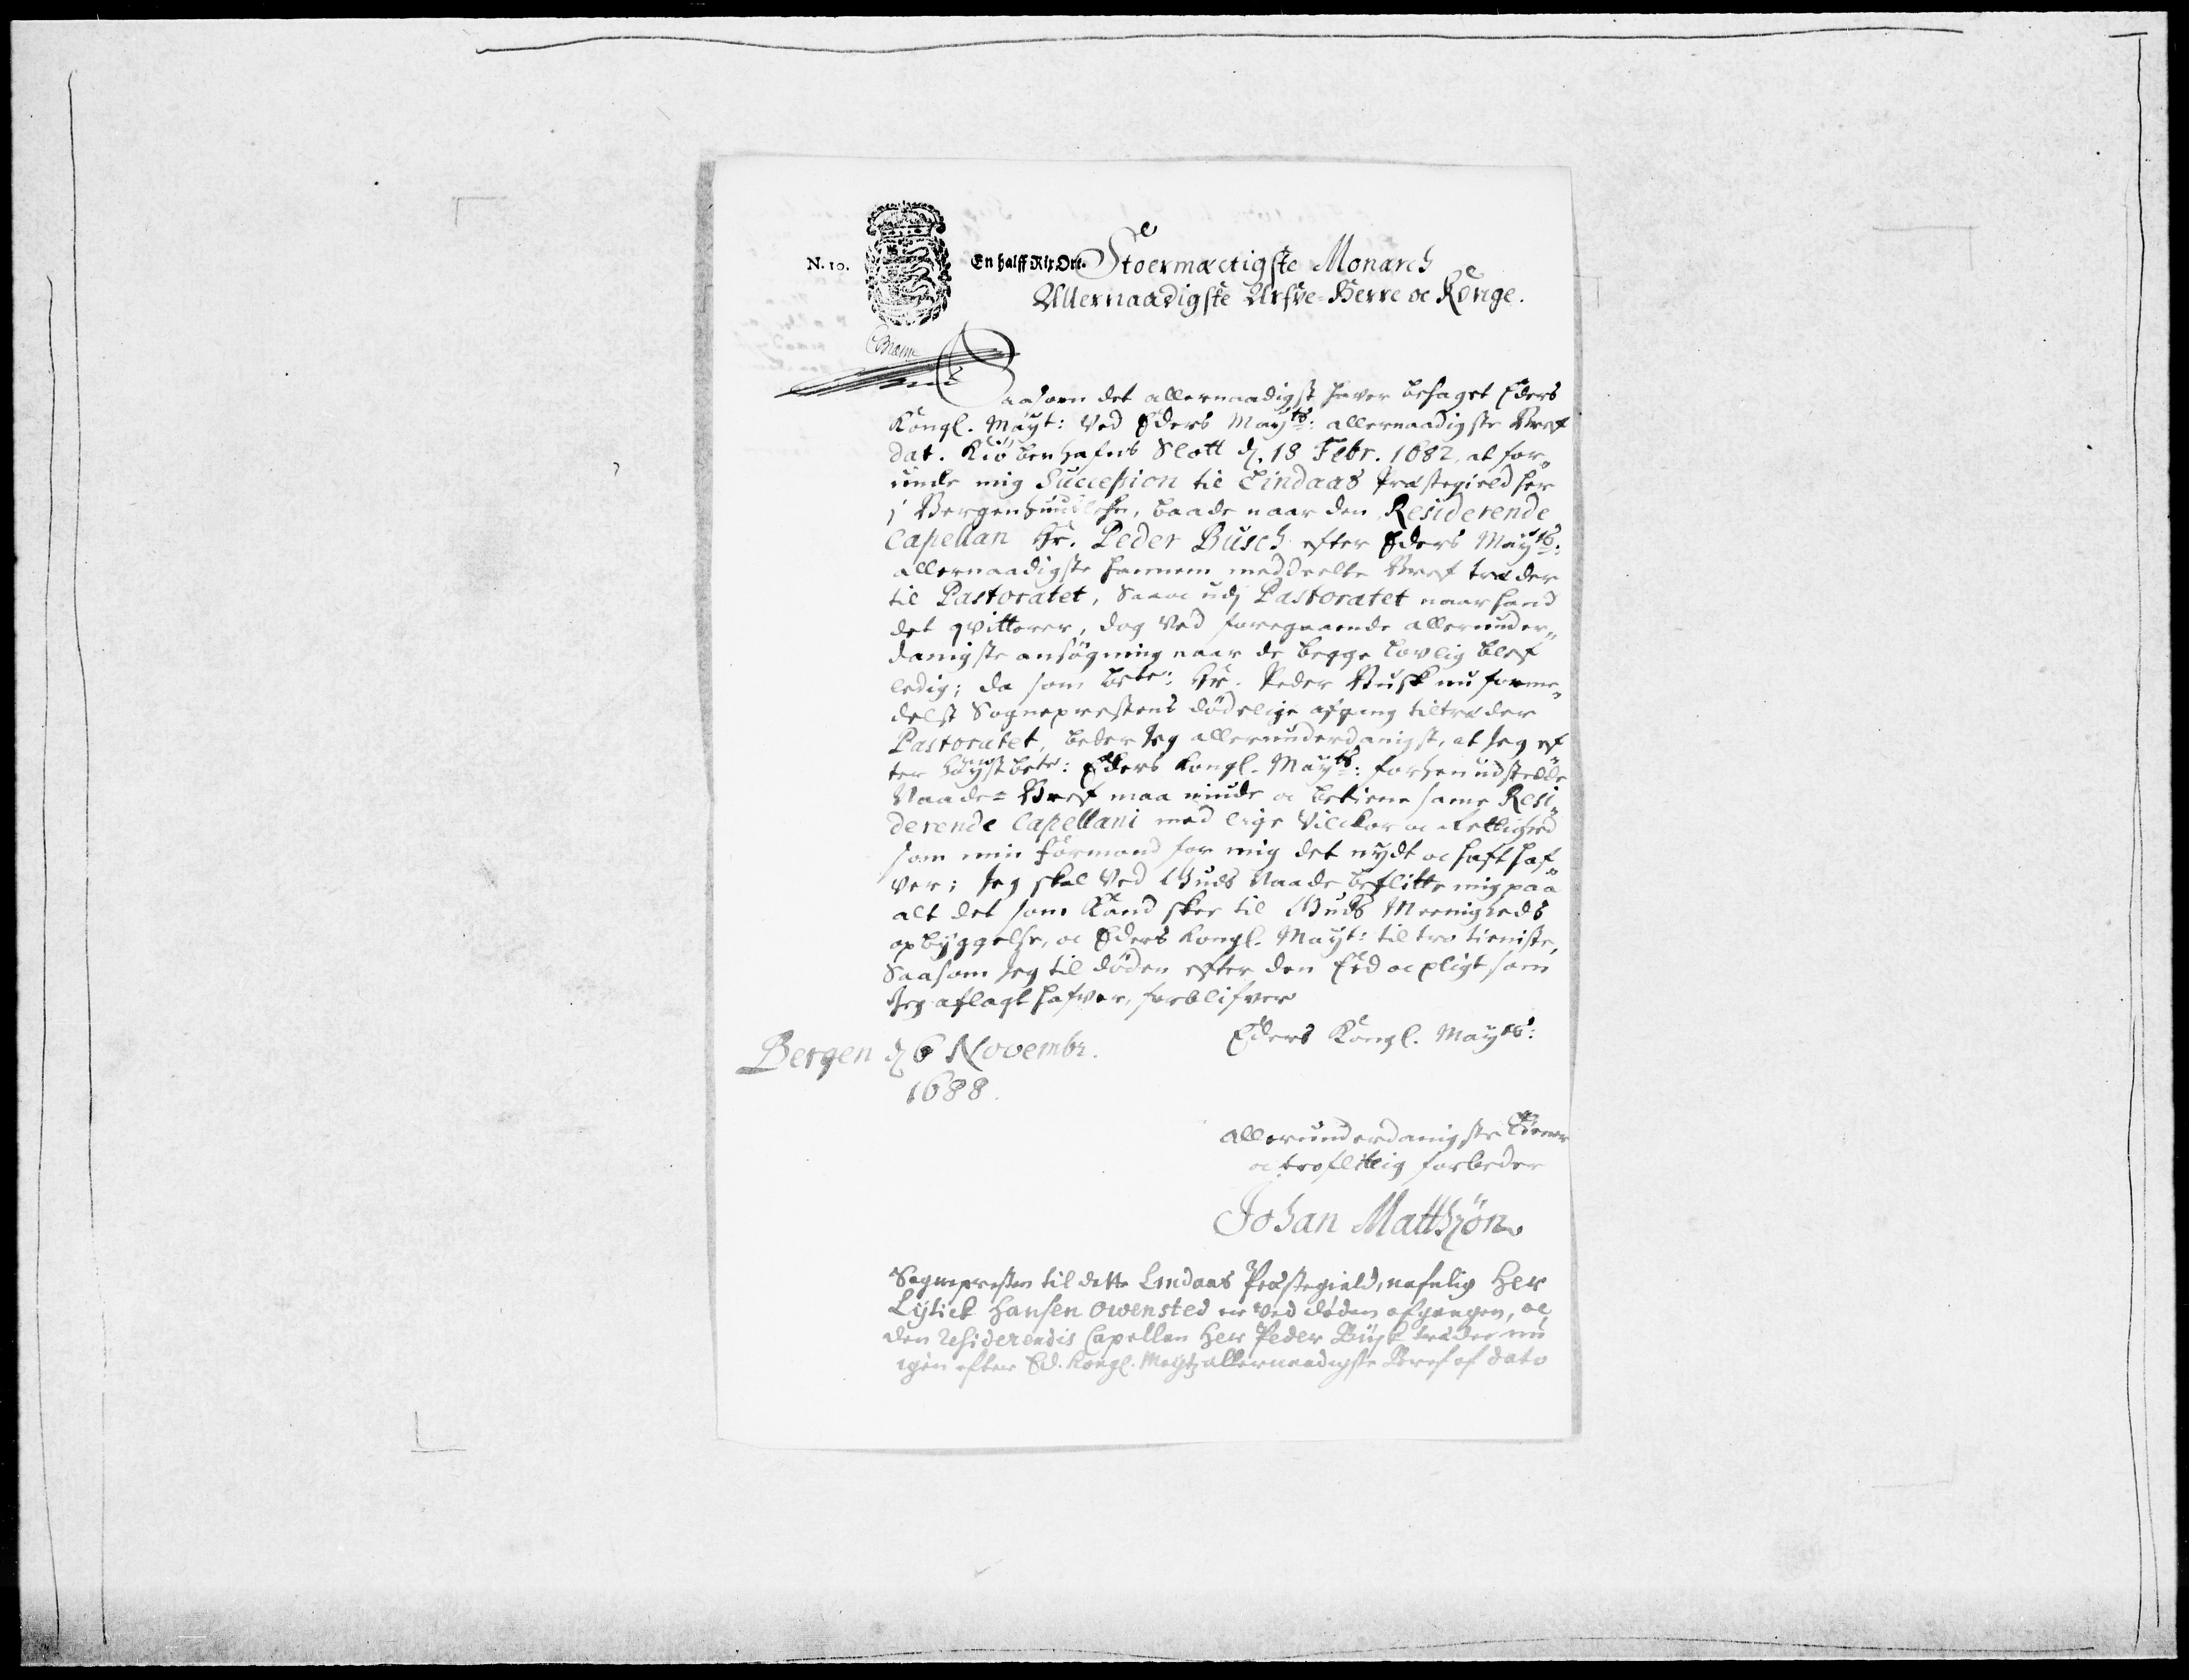 N. 10.
En halff Rix Ort.
Stoermæctigste Monarch
Allernaadigste Arfve-Herre oc Konge.
Saasom det allernaadigst haver behaget Eders
Kongl. Mayt: ved Eders Mayts: allernaadigste Bref
dat. Kiøbenhafns Slott d. 18 Febr. 1682, at for„
unde mig Succession til Lindaas Præstegield her
i Bergenhuus lehn, baade naar den Residerende
Capellan Hr. Peder Busch efter Eders Mayts:
allernaadigste hannem meddeelte Bref træder
til Pastoratet, saa oc udj Pastoratet naar hand
det qvitterer, dog ved foregaaende allerunder„
danigste ansøgning naar de begge lovlig blef
ledig; da som bete: Hr. Peder Busk nu forme„
delst Sogneprestens dødelige afgang tiltræder
Pastoratet, beder Jeg allerunderdanigst, at Jeg ef„
ter høystbete: Eders Kongl. Mayts: forhen udstedde
Naade= Bref maa niude oc betiene samme Resi„
derende Capellani med lige vilckor oc Rettighed
som min formand for mig det nydt oc haft haf„
ver; Jeg skal ved Guds Naade beflitte mig paa
alt det som kand skee til Guds Meenigheds
opbyggelse, oc Eders Kongl. Mayt: til tro tieniste,
Saasom Jeg til døden efter den Eed oc pligt som
Jeg aflagt hafver, forblifver
Eders Kongl. Mayts:
Bergen d 6 Novembr.
1688.
allerunderdanigste tiener
oc troflittig forbeder
Johan Matthzøn
Sognepresten til dette Lindaas Præstegield, nafnlig Her
Lytick Hansen Owensted er ved døden afgangen, oc
den residerendis Capellan Her Peder Busk træder nu
igien efter Ed. Kongl. Mayts allernaadigste Bref af dato